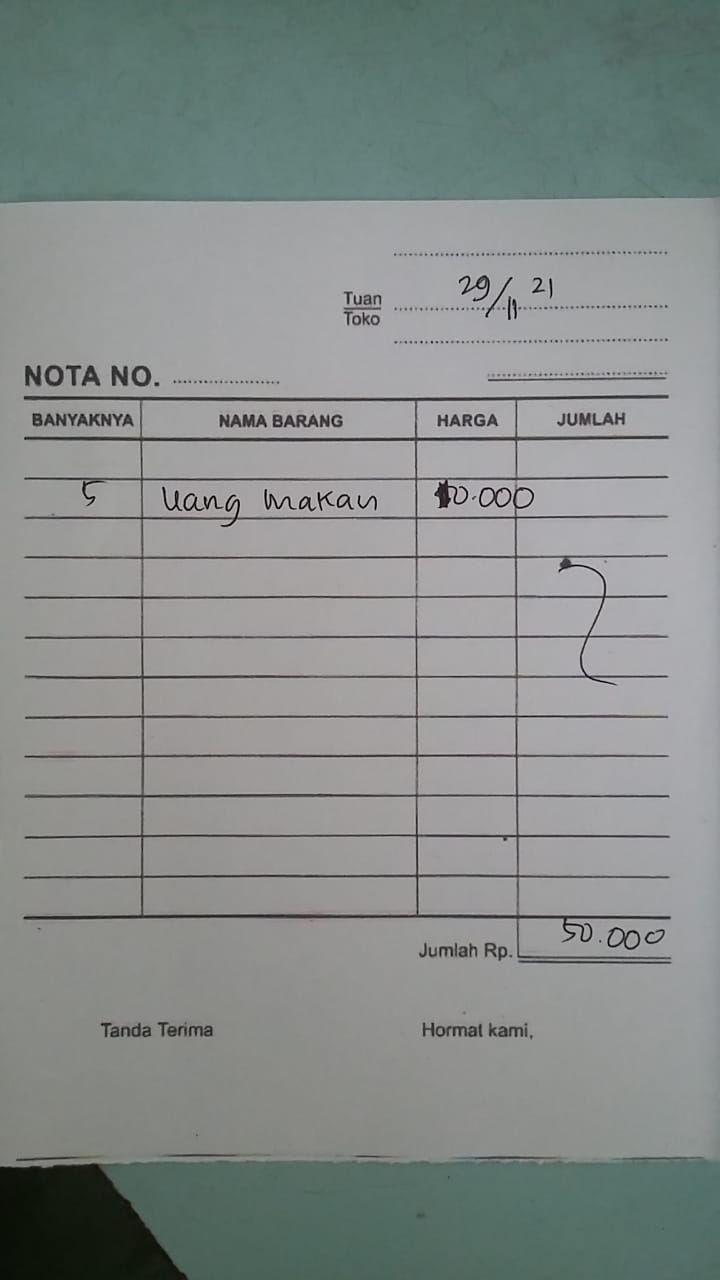 29/11 21
Tuan
Toko
NOTA NO.
BANYAKNYA NAMA BARANG HARGA JUMLAH
5 Uang makan 10.000
Jumlah Rp. 50.000
Tanda Terima Hormat kami,